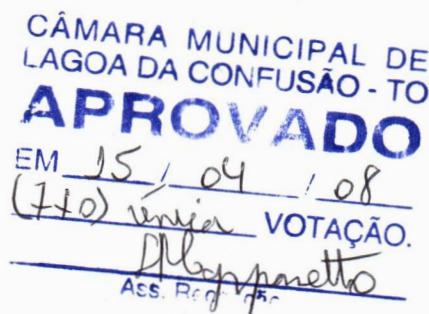 CÂMARA MUNICIPAL DE
LAGOA DA CONFUSÃO - TO
APROVADO
EM 15 / 04 / 08
(7x0) única VOTAÇÃO.
Ass.